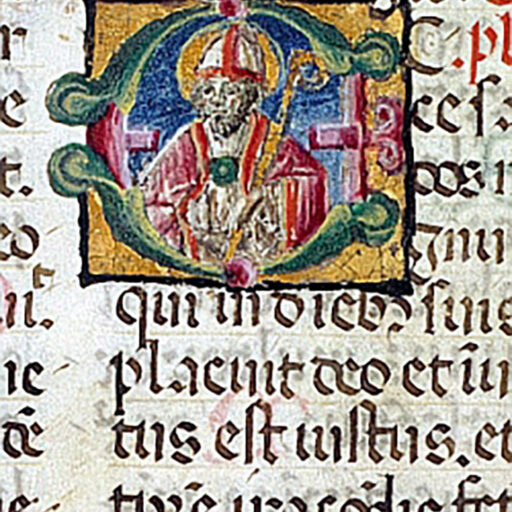 r
e
t.
eo
ie
dē
C. pl
ce s
dos
gnu
qui in diebꝰ suis
placuit deo et iū
tus est iustus. et